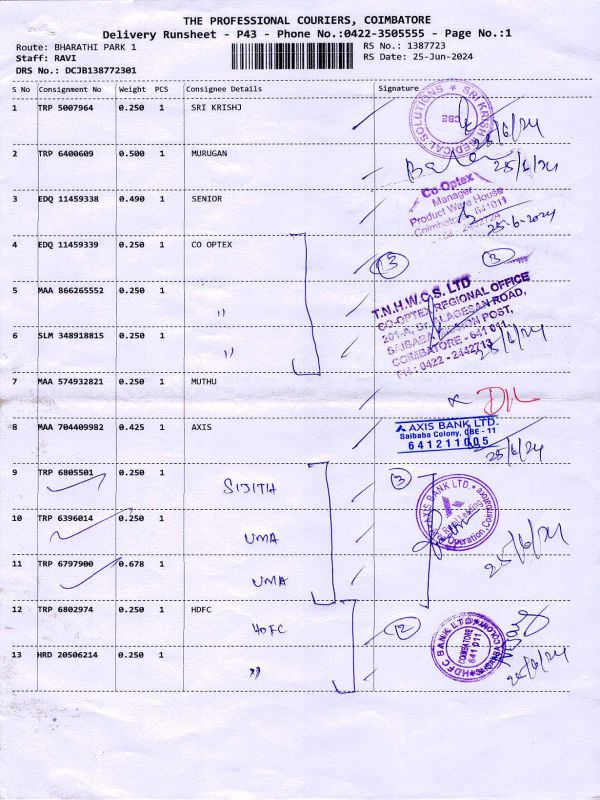 THE PROFESSIONAL COURIERS, COIMBATORE
Delivery Runsheet - P43 - Phone No.:0422-3505555 - Page No.:1
Route: BHARATHI PARK 1
RS No.: 1387723
Staff: RAVI
RS Date: 25-Jun-2024
DRS No.: DCJB138772301
S No Consignment No Weight PCS Consignee Details Signature
1 TRP 5007964 0.250 1 SRI KRISHJ
SRI KRISH MEDICAL SOLUTIONS
CBE
25/6/24
2 TRP 6400609 0.500 1 MURUGAN
25/6/24
3 EDQ 11459338 0.490 1 SENIOR
Co Optex
Manager
Product Ware House
Coimbatore - 641011
25-6-2024
4 EDQ 11459339 0.250 1 CO OPTEX
3 3
5 MAA 866265552 0.250 1 "
T.N.H.W.C.S. LTD
CO-OPTEX REGIONAL OFFICE
COIMBATORE - 641 011.
PH : 0422 - 2442713
6 SLM 348918815 0.250 1 "
25/6/24
7 MAA 574932821 0.250 1 MUTHU
8 MAA 704409982 0.425 1 AXIS
AXIS BANK LTD.
Saibaba Colony, CBE - 11
641211005
25/6/24
9 TRP 6805501 0.250 1 SIJITH
3
AXIS BANK LTD.
10 TRP 6396014 0.250 1 UMA
25/6/24
11 TRP 6797900 0.678 1 UMA
12 TRP 6802974 0.250 1 HDFC
HDFC
2
HDFC BANK LTD
COIMBATORE
641 011
13 HRD 20506214 0.250 1 "
25/6/24